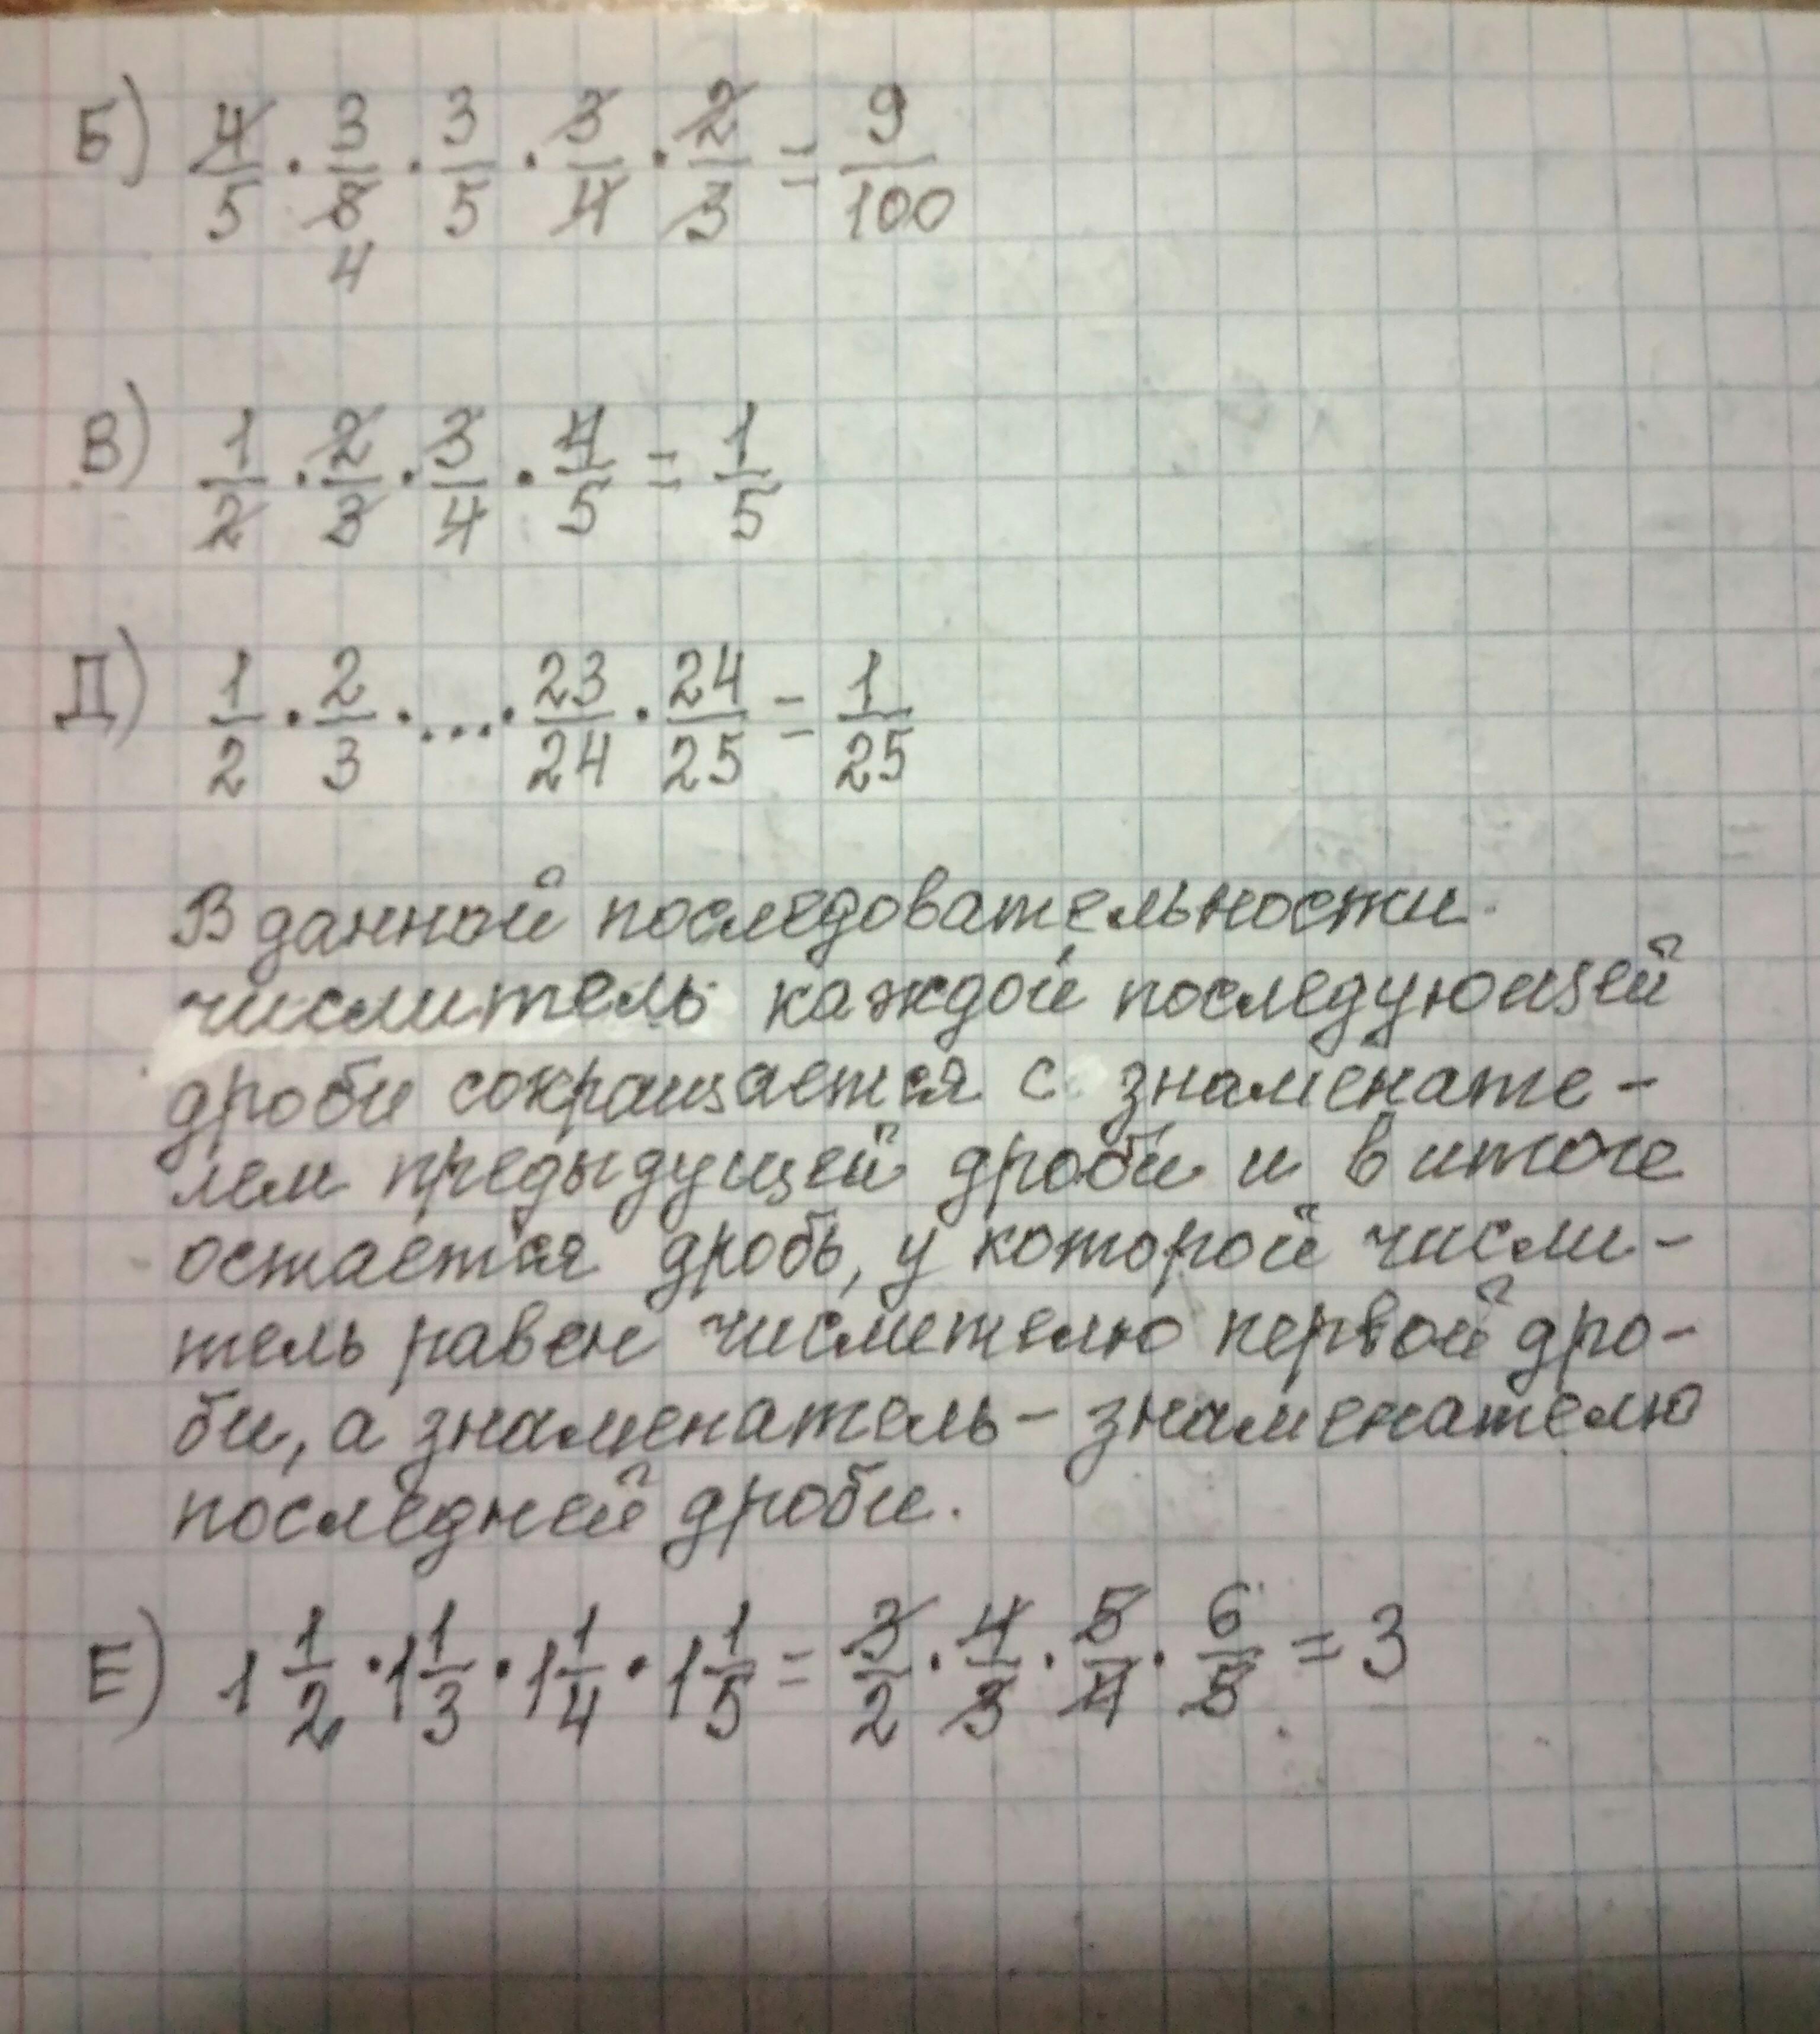 Б) 4/5 · 3/8 · 3/5 · 3/4 · 2/3 = 9/100
4
В) 1/2 · 2/3 · 3/4 · 4/5 = 1/5
Д) 1/2 · 2/3 · ... · 23/24 · 24/25 = 1/25
В данной последовательности
числитель каждой последующей
дроби сокращается с знаменате-
лем предыдущей дроби и в итоге
остается дробь, у которой числи-
тель равен числителю первой дро-
би, а знаменатель - знаменателю
последней дроби.
Е) 1 1/2 · 1 1/3 · 1 1/4 · 1 1/5 = 3/2 · 4/3 · 5/4 · 6/5 = 3